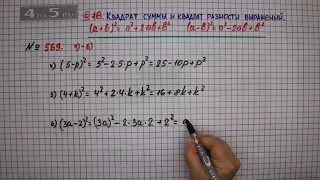 4 на 5.ru
§ 16. Квадрат суммы и квадрат разности выражений.
(a+b)² = a²+2ab+b² (a-b)² = a²-2ab+b²
№ 569. 4)-6)
4) (5-p)² = 5²-2·5·p+p² = 25-10p+p²
5) (4+k)² = 4²+2·4·k+k² = 16+8k+k²
6) (3a-2)² = (3a)²-2·3a·2+2² =